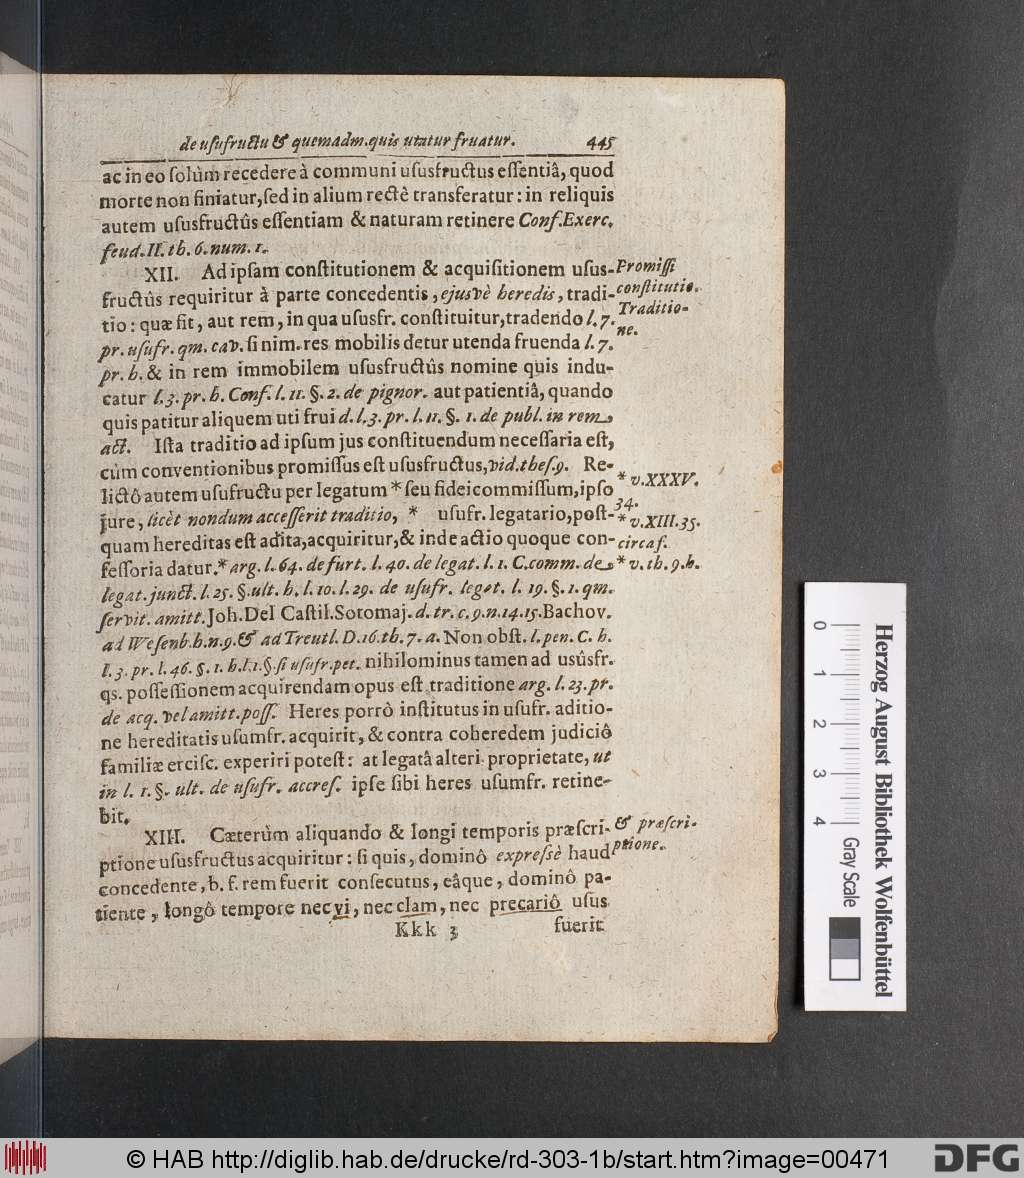 de usufructu & quemadm. quis utatur fruatur. 445
ac in eo solùm recedere à communi ususfructus essentiâ, quod
morte non finiatur, sed in alium rectè transferatur: in reliquis
autem ususfructûs essentiam & naturam retinere Conf. Exerc.
feud. II. th. 6. num. 1.
XII. Ad ipsam constitutionem & acquisitionem usus-
Promissi
fructûs requiritur à parte concedentis, ejusvè heredis, tradi-
constitutio.
tio: quæ fit, aut rem, in qua ususfr. constituitur, tradendo l. 7.
Traditio-
ne.
pr. usufr. qm. cav. si nim. res mobilis detur utenda fruenda l. 7.
pr. h. & in rem immobilem ususfructûs nomine quis indu-
catur l. 3. pr. h. Conf. l. 11. §. 2. de pignor. aut patientiâ, quando
quis patitur aliquem uti frui d. l. 3. pr. l. 11. §. 1. de publ. in rem
act. Ista traditio ad ipsum jus constituendum necessaria est,
cùm conventionibus promissus est ususfructus, vid. thes. 9. Re-
lictô autem usufructu per legatum * seu fideicommissum, ipso
* v. XXXV.
34.
jure, licèt nondum accesserit traditio, * usufr. legatario, post-
* v. XIII. 35.
quam hereditas est adita, acquiritur, & inde actio quoque con-
circa f.
fessoria datur. * arg. l. 64. de furt. l. 40. de legat. l. 1. C. comm. de
* v. th. 9. h.
legat. junct. l. 25. §. ult. h. l. 10. l. 29. de usufr. legat. l. 19. §. 1. qm.
servit. amitt. Joh. Del Castil. Sotomaj. d. tr. c. 9. n. 14. 15. Bachov.
ad Wesenb. h. n. 9. & ad Treutl. D. 16. th. 7. a. Non obst. l. pen. C. h.
l. 3. pr. l. 46. §. 1. h. l. 1. §. si usufr. pet. nihilominus tamen ad usûsfr.
qs. possessionem acquirendam opus est traditione arg. l. 23. pr.
de acq. vel amitt. poss. Heres porrò institutus in usufr. aditio-
ne hereditatis usumfr. acquirit, & contra coheredem judiciô
familiæ ercisc. experiri potest: at legatâ alteri proprietate, ut
in l. 1. §. ult. de usufr. accres. ipse sibi heres usumfr. retine-
bit.
XIII. Cæterùm aliquando & longi temporis præscri-
& præscri-
ptione ususfructus acquiritur: si quis, dominô expressè haud
ptione.
concedente, b. f. rem fuerit consecutus, eâque, dominô pa-
tiente, longô tempore nec vi, nec clam, nec precariô usus
Kkk 3 fuerit
Herzog August Bibliothek Wolfenbüttel
0 1 2 3 4
Gray Scale
© HAB http://diglib.hab.de/drucke/rd-303-1b/start.htm?image=00471
DFG